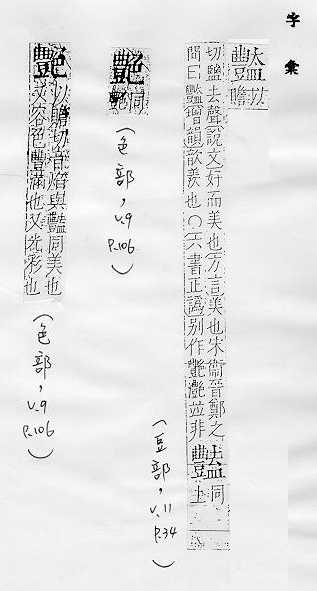 字彙
豔 以贍
切鹽去聲說文好而美也方言美也宋衞晉鄭之
問曰豔增韻歆羨也○六書正譌別作艷灔並非豓同上
(豆部, v.11 P.34)
艷 同
(色部, v.9 P.106)
艶 以贍切音焰與豔同美也
又容色豐滿也又光彩也
(色部, v.9 P.106)